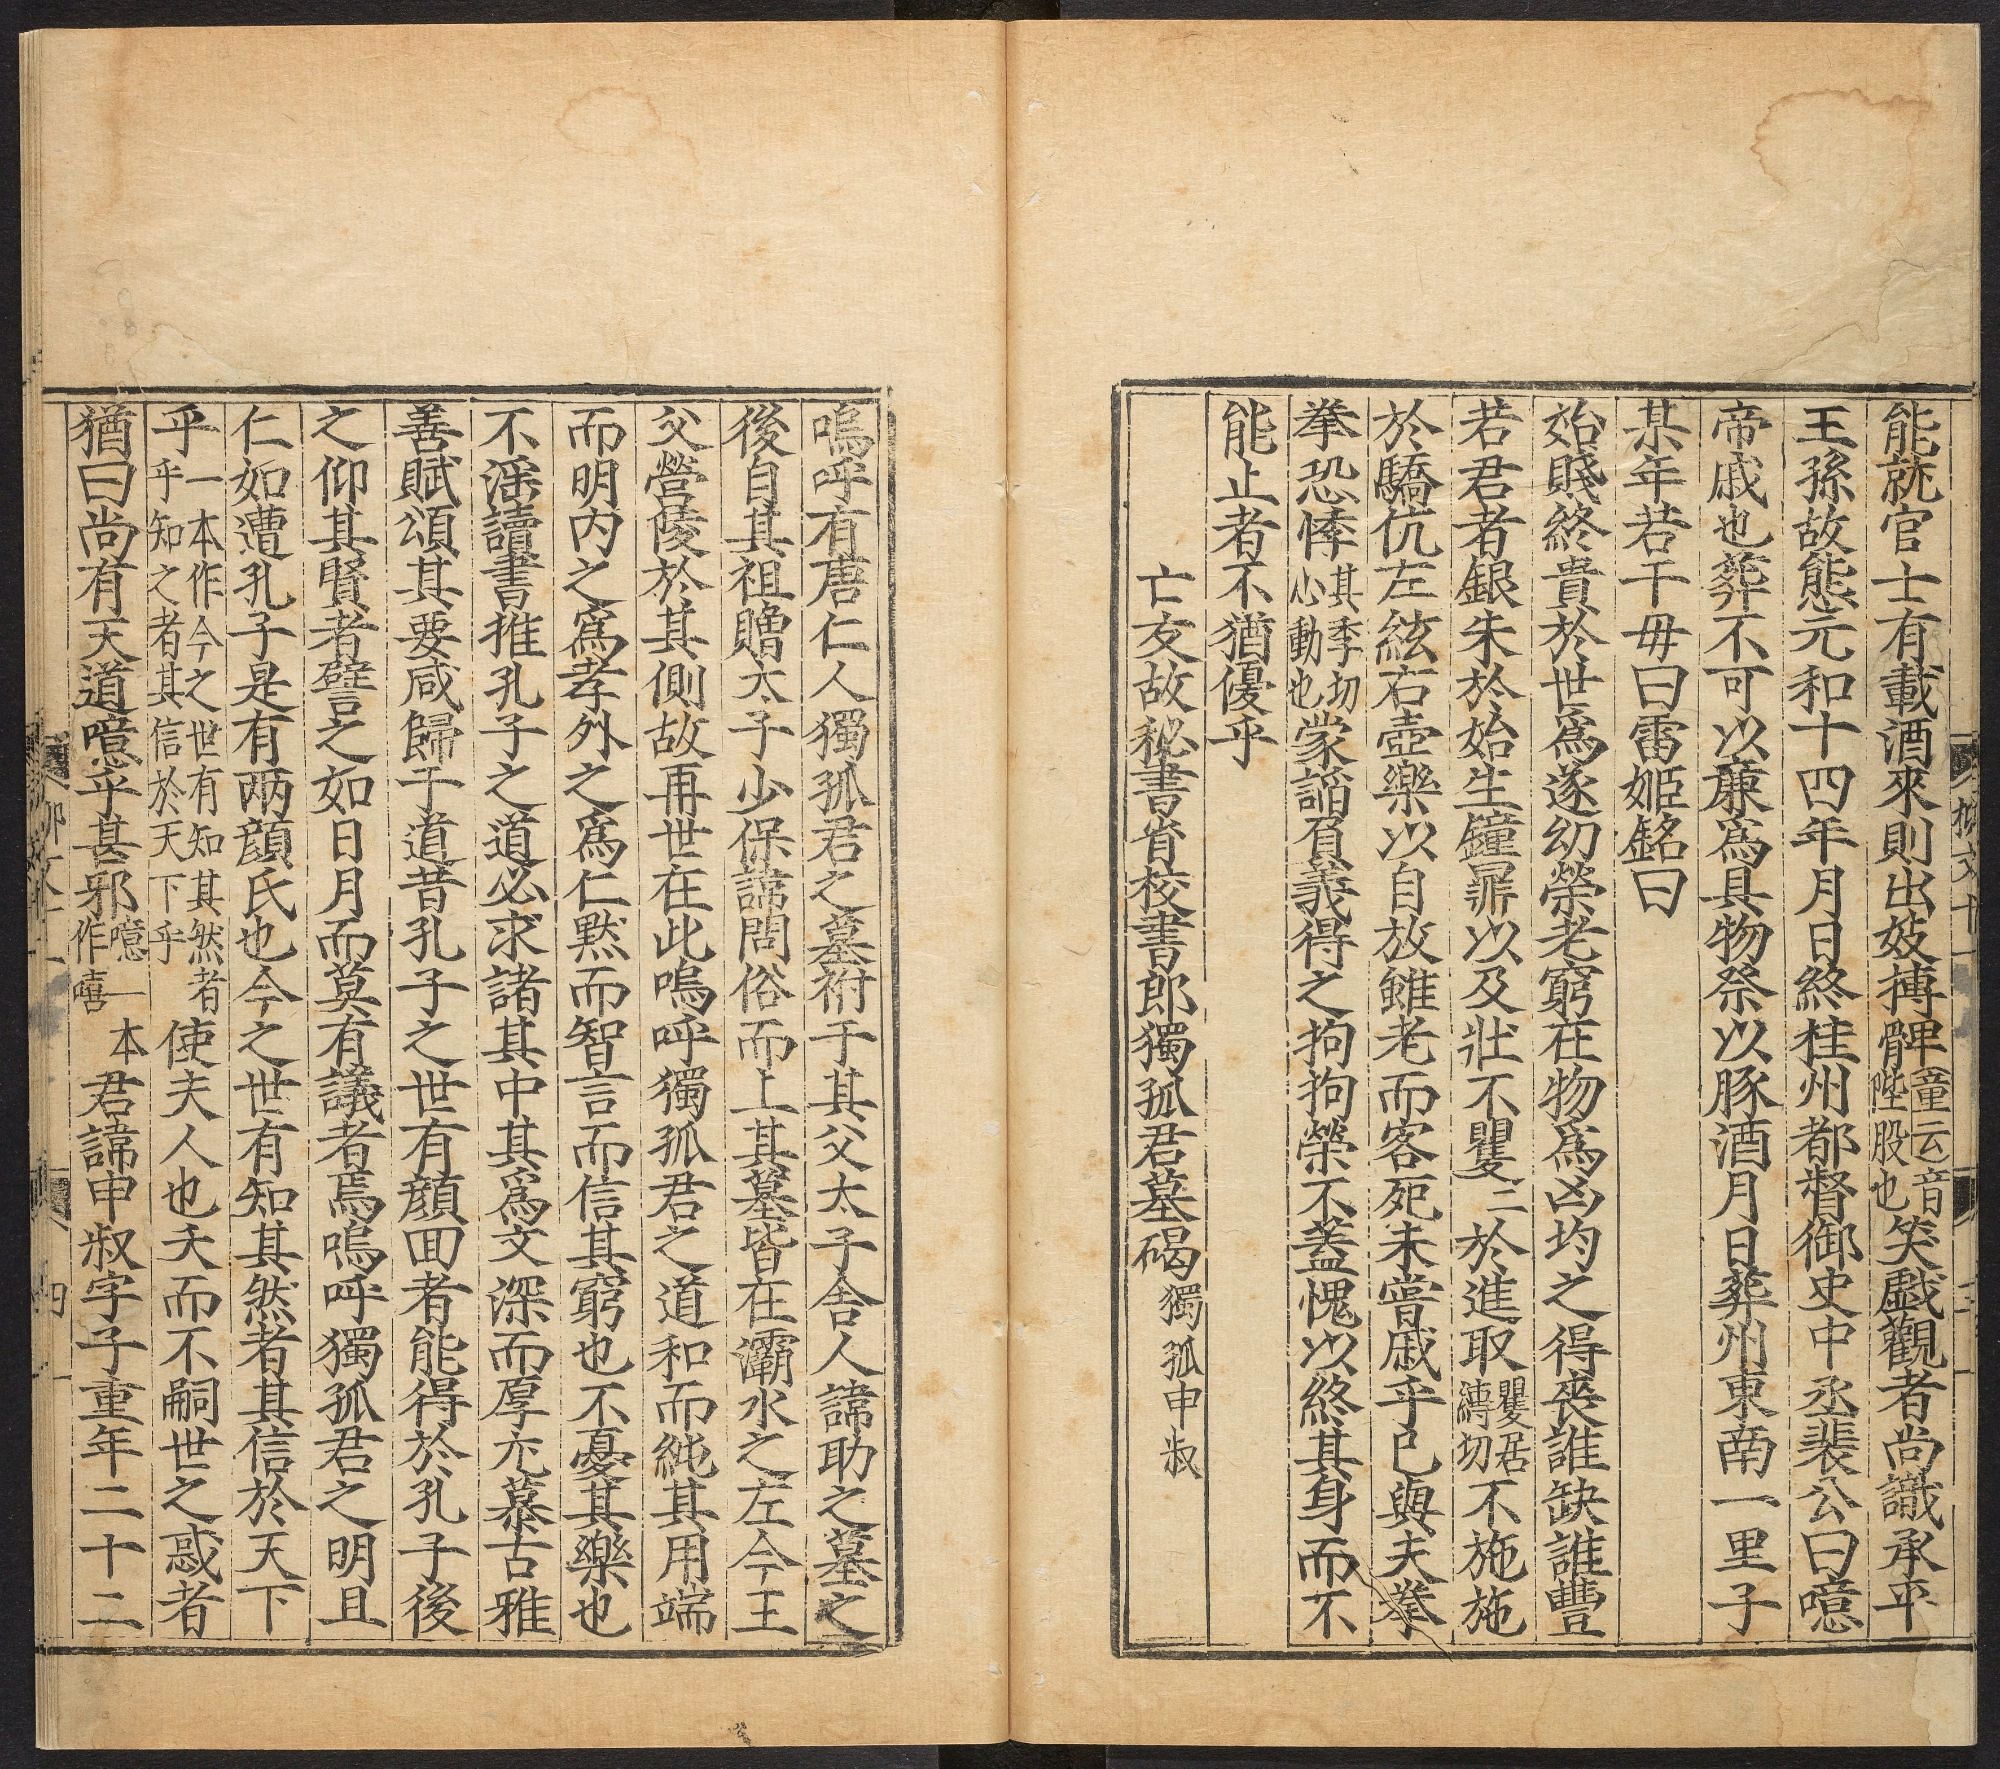 能就官士有載酒來則出妓搏髀童云音䏶股也笑戲觀者尚識承平
王孫故態元和十四年月日終桂州都督御史中丞裴公曰噫
帝戚也葬不可以廉爲具物祭以豚酒月日葬州東南一里子
某年若干毋曰雷姬銘曰
始賤終貴於世爲遂幼榮老窮在物爲凶均之得喪誰缺誰豐
若君者銀朱於始生鐘鼎以及壯不矍二於進取矍居縳切不施施
於驕伉左絃右壺樂以自放雖老而客死未嘗戚乎已與夫拳
拳恐悸其季切心動也蒙謟負義得之拘拘榮不蓋愧以終其身而不
能止者不猶優乎
亡友故秘書省校書郎獨孤君墓碣獨孤申叔
柳文十一
三
嗚呼有唐仁人獨孤君之墓祔于其父太子舍人諱助之墓之
後自其祖贈太子少保諱問俗而上其墓皆在灞水之左今王
父營陵於其側故再世在此嗚呼獨孤君之道和而純其用端
而明内之爲孝外之爲仁黙而智言而信其窮也不憂其樂也
不滛讀書推孔子之道必求諸其中其爲文深而厚尤慕古雅
善賦頌其要咸歸于道昔孔子之世有顔回者能得於孔子後
之仰其賢者譬之如日月而莫有議者焉嗚呼獨孤君之明且
仁如遭孔子是有兩顔氏也今之世有知其然者其信於天下
乎一本作今之世有知其然者乎知之者其信於天下乎使夫人也夭而不嗣世之惑者
猶曰尚有天道噫乎甚邪噫一本作嘻君諱申叔字子重年二十二
四